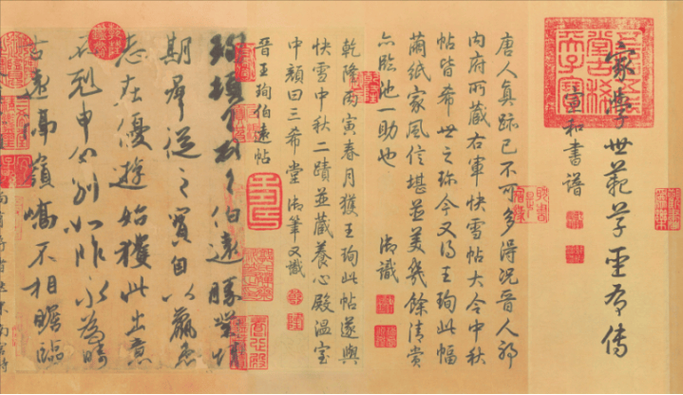 五福五代堂古稀天子寶
家學世範草聖有傳
宣和書譜
唐人真跡已不可多得況晉人耶
內府所藏右軍快雪帖大令中秋
帖皆希世之珍今又得王珣此幅
繭紙家風信堪並美幾餘清賞
亦臨池一助也 御識
乾隆丙寅春月獲王珣此帖遂與
快雪中秋二蹟並藏養心殿溫室
中顏曰三希堂 御筆又識
晉王珣伯遠帖
珣頓首頓首伯遠勝業情
期群從之寶自以羸患
志在優遊始獲此出意
不剋申分別如昨永為疇
古遠隔嶺嶠不相瞻臨